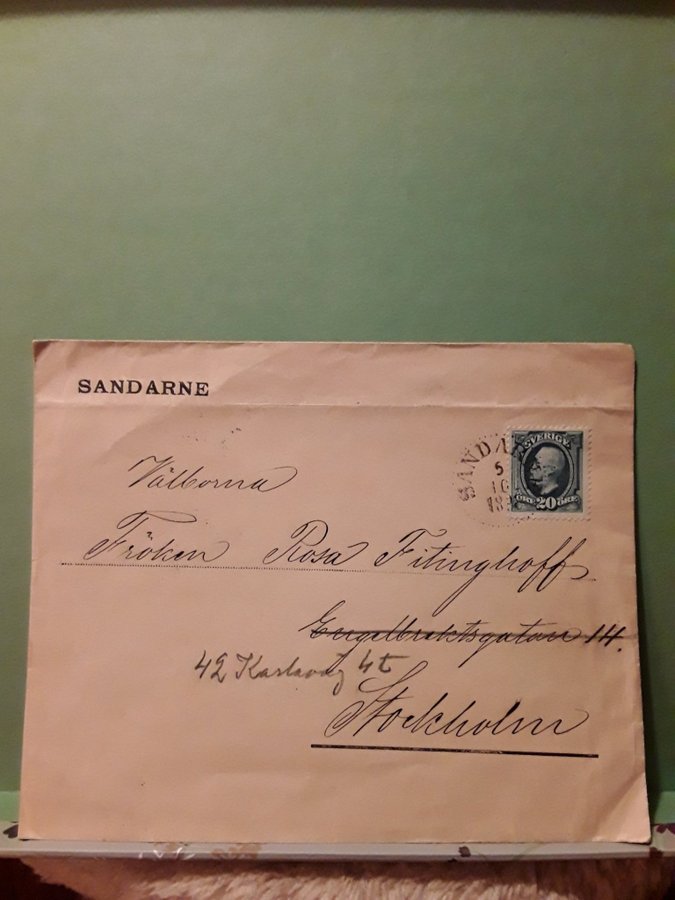 SANDARNE
SANDAR
5
10
18
SVERIGE
ÖRE 20 ÖRE
Välborna
Fröken Rosa Fitinghoff
Engelbrektsgatan 14.
42 Karlaväg 4t
Stockholm